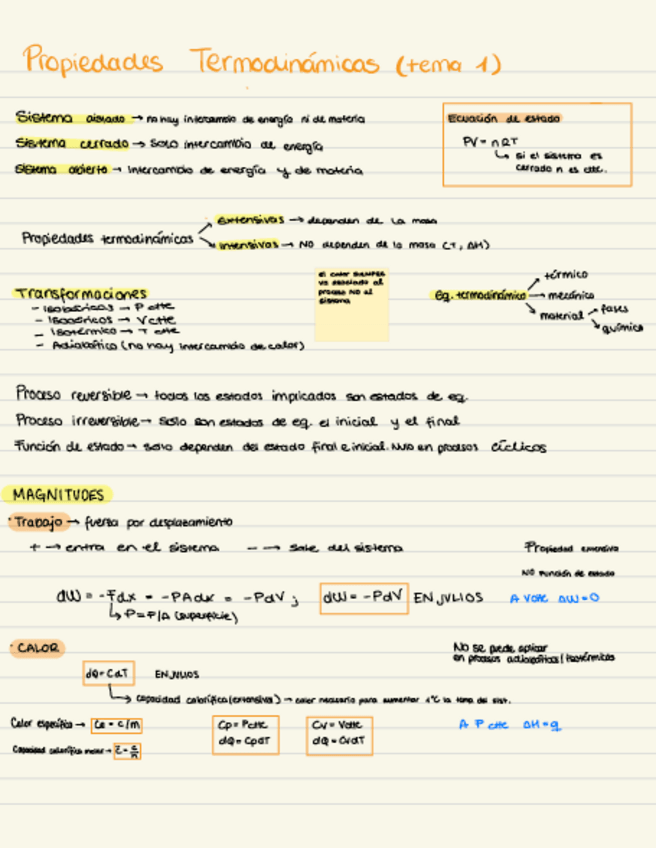 Propiedades Termodinámicas (tema 1)
Sistema aislado → no hay intercambio de energía ni de materia
Sistema cerrado → Solo intercambio de energía
Sistema abierto → Intercambio de energía y de materia
Ecuación de estado
PV = nRT
↳ si el sistema es
cerrado n es ctte.
Propiedades termodinámicas
Extensivas → dependen de la masa
intensivas → NO dependen de la masa (T, ΔH)
Transformaciones
- Isobáricas → P ctte
- Isocóricos → V ctte
- Isotérmico → T ctte
- Adiabático (no hay intercambio de calor)
El calor SIEMPRE
va asociado al
proceso NO al
sistema
Eq. termodinámico
→ térmico
→ mecánico
→ material
→ fases
→ químico
Proceso reversible → todos los estados implicados son estados de eq.
Proceso irreversible → Sólo son estados de eq. el inicial y el final
Función de estado → solo dependen del estado final e inicial. Nulo en procesos cíclicos
MAGNITUDES
· Trabajo → fuerza por desplazamiento
+ → entra en el sistema - → sale del sistema
Propiedad extensiva
NO Función de estado
dW = -Fdx = -PAdx = -PdV ; dW = -PdV EN JULIOS
↳ P = F/A (superficie)
A Vctte ΔW=0
· CALOR
No se puede aplicar
en procesos adiabáticos/isotérmicos
dQ = CdT EN JULIOS
↳ capacidad calorífica (extensiva) → calor necesario para aumentar 1ºC la temp del sist.
Calor específico → Ce = C/m
Capacidad calorífica molar → C̄ = C/n
Cp = Pctte
dQ = CpdT
Cv = Vctte
dQ = CvdT
A P ctte ΔH = q